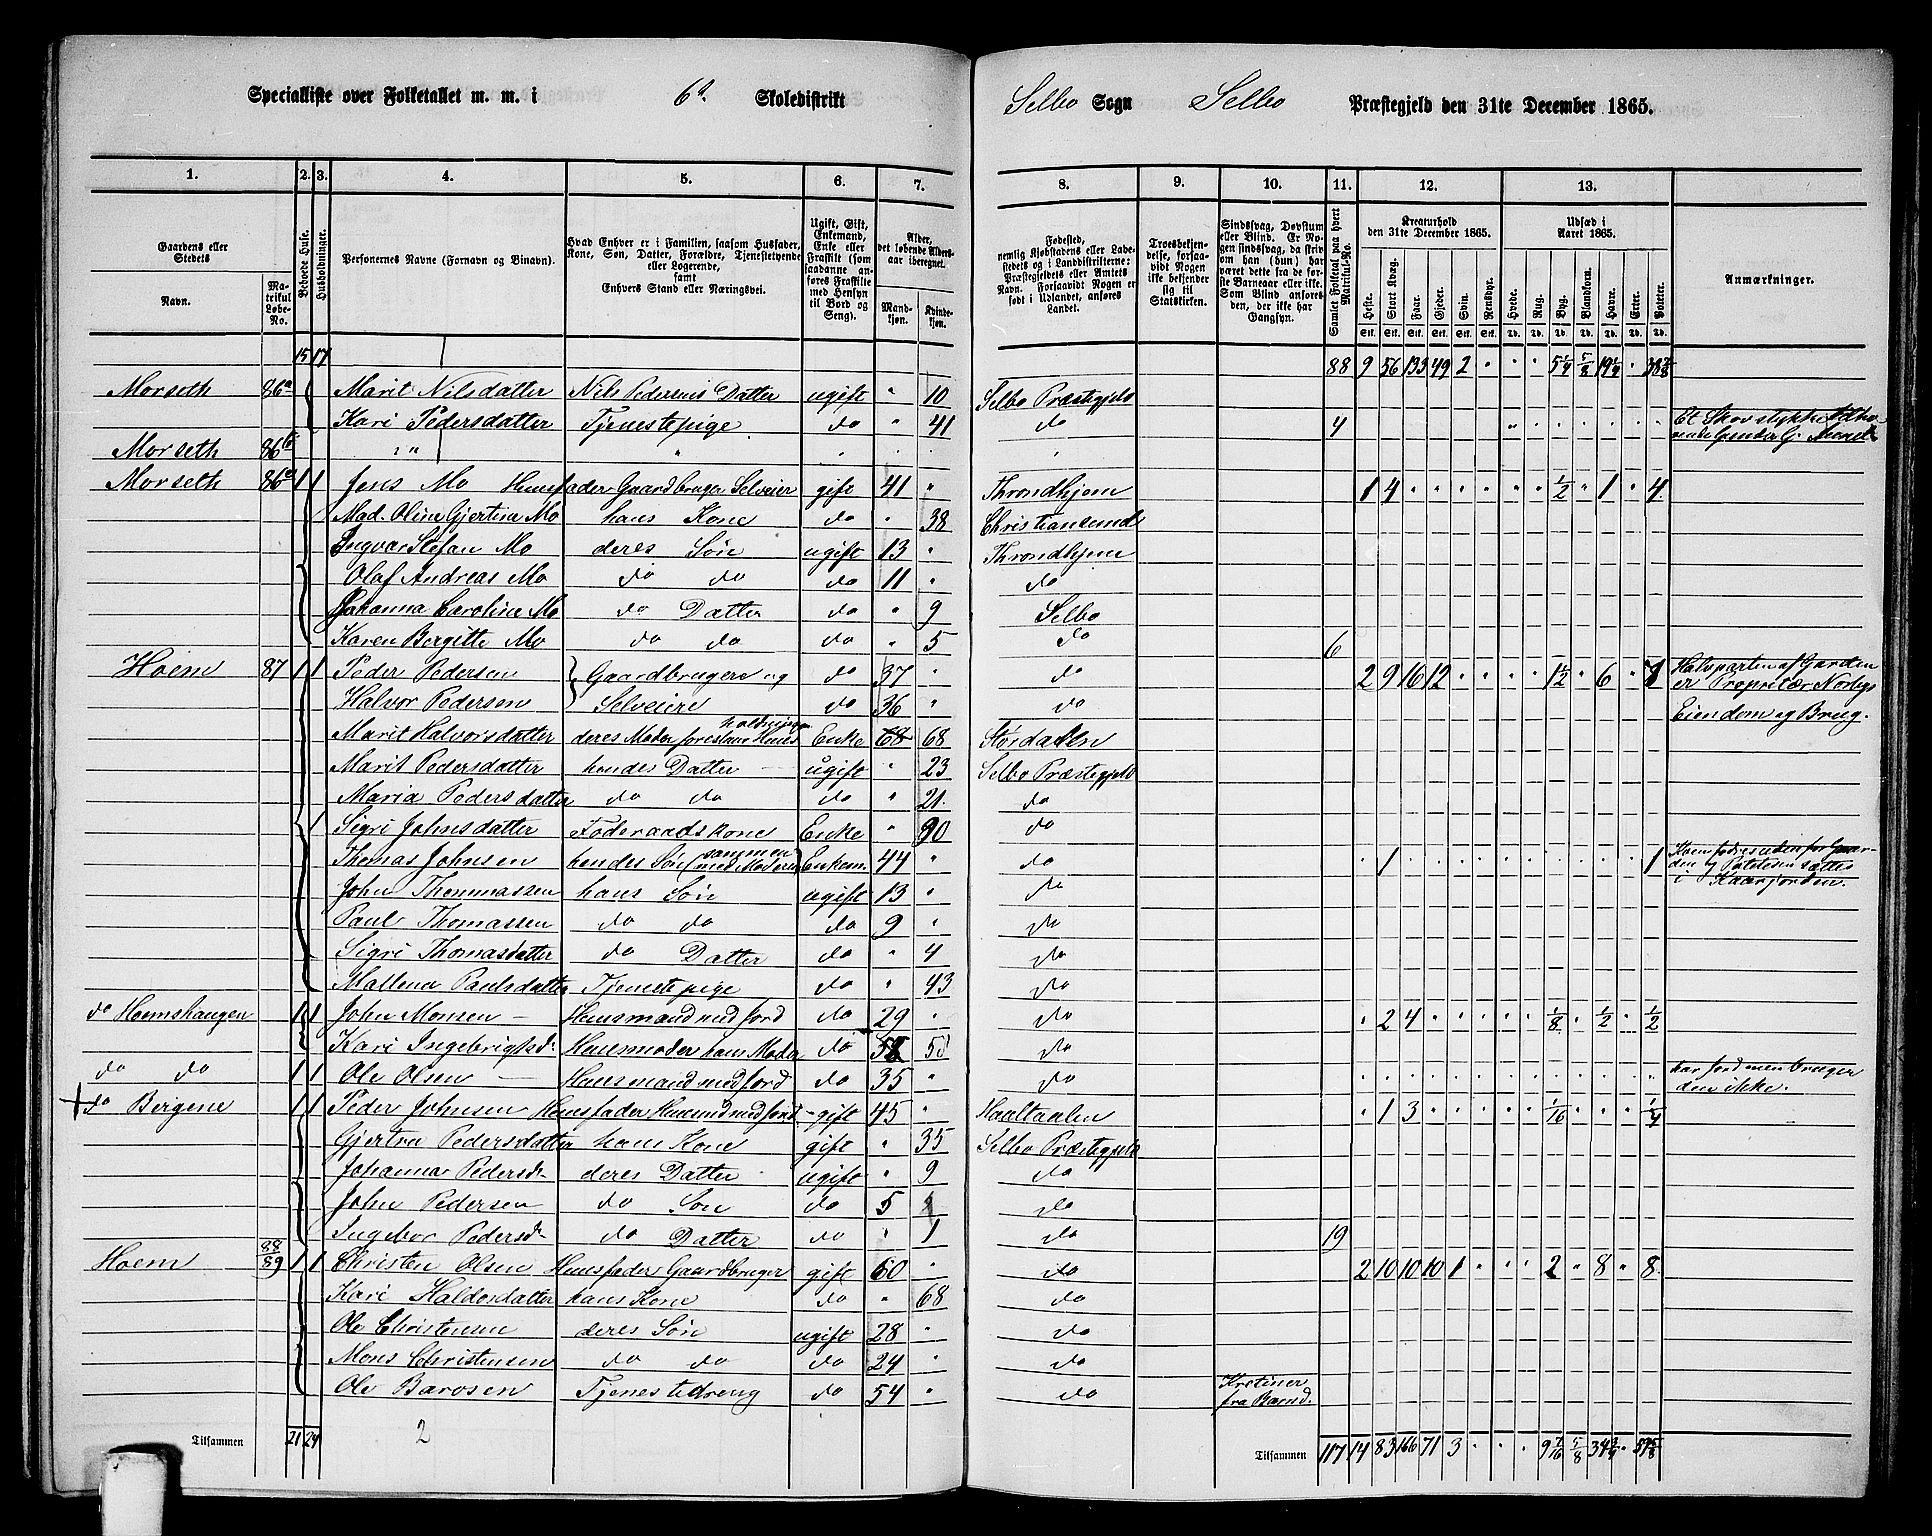 Specialliste over Folketallet m. m. i 6te Skoledistrikt Selbo Sogn Selbo Præstegjeld den 31te December 1865.
1. 2. 3. 4. 5. 6. 7. 8. 9. 10. 11. 12. 13.
Gaardens eller Stedets
Navn. Matrikul Løbe-No.
Beboede Huse.
Husholdninger.
Personernes Navne (Fornavn og Binavn).
Hvad Enhver er i Familien, saasom Husfader, Kone, Søn, Datter, Forældre, Tjenestetyende eller Logerende, samt Enhvers Stand eller Næringsvei.
Ugift, Gift, Enkemand, Enke eller Fraskilt (som saadanne anføres Fraskilte med Hensyn til Bord og Seng).
Alder, det løbende Alders-aar iberegnet.
Mandkjøn. Kvindekjøn.
Fødested, nemlig Kjøbstadens eller Ladestedets og i Landdistrikterne: Præstegjeldets eller Amtets Navn. Forsaavidt Nogen er født i Udlandet, anføres Landet.
Troesbekjendelse, forsaavidt Nogen ikke bekjender sig til Statskirken.
Sindssvag, Døvstum eller Blind. Er Nogen sindssvag, da skrives om han (hun) har været dette fra de første Barneaar eller ikke. Som Blind ansøres den, der ikke har Gangsyn.
Samlet Folketal paa hvert Matrikul-No.
Kreaturhold den 31te December 1865.
Heste. Stort Kvæg. Faar. Gjeder. Svin. Rensdyr.
Udsæd i Aaret 1865.
Hvede. Rug. Byg. Blandkorn. Havre. Erter. Poteter.
Anmærkninger.
15 17 88 9 56 133 49 2 " " " 5 1/4 5/8 19 1/4 " 38 7/8
Morseth 86a Marit Nilsdatter Nils Pedersens Datter ugift " 10 Selbo Præstegjeld
Kari Pedersdatter Tjenestepige do " 41 4 Et Skovstykke
Morseth 86b " "
Morseth 86c 1 1 Jens Mo Huusfader Gaardbruger Selveier gift 41 " Throndhjem 1 4 " " " " " " 1/2 " 1 " 4
Mad. Olina Gjertina Mo hans Kone do " 38 Christiansund
Ingvar Stefan Mo deres Søn ugift 13 " Throndhjem
Olaf Andreas Mo do do do 11 " do
Johanna Caroline Mo do Datter do " 9 Selbo
Karen Bergitte Mo do do do " 5 do 6
Hoem 87 1 1 Peder Pedersen } Gaardbrugere og do 37 " do 2 9 16 12 " " " " 1 1/2 " 6 " 7 Halvparten af Gaarden
Halvor Pedersen Selveiere do 36 " do er Proprietær Norbys
Marit Halvorsdatter deres Moder forestaar Huusholdningen Enke 68 68 Størdalen Eiendom og Brug.
Marit Pedersdatter hendes Datter ugift " 23 Selbo Præstegjeld
Maria Pedersdatter do do do " 21. do
1 Sigri Johnsdatter Føderaadskone Enke " 90 do
Thomas Johnsen hendes Søn (sammen med Moderen) Enkem. 44 " do " 1 " " " " " " " " " " 1
John Thommassen hans Søn ugift 13 " do
Paul Thomassen do do do 9 " do
Sigri Thomasdatter do Datter do " 4 do
Mallena Paulsdatter Tjenestepige do " 43 do
do Hoemshaugen 1 1 John Monsen - Huusmand med Jord do 29 " do " 2 4 " " " " " 1/8 " 1/2 " 1/2
Kari Ingebrigtsd. Huusmoder hans Moder do 58 58 do
do do 1 1 Ole Olsen - Huusmand med Jord do 35 " do har Jord men bruger den ikke.
+ do Bergene 1 1 Peder Johnsen Huusfader Huusmd med Jord gift 45 " Haaltaalen " 1 3 " " " " " 1/16 " " " 1/4
Gjertru Pedersdatter hans Kone gift " 35 Selbo Præstegjeld
Johanna Pedersd. deres Datter ugift " 9 do
John Pedersen do Søn do 5 do
Ingebor Pedersd. do Datter do " 1 do 19
Hoem 88 89 1 1 Christen Olsen Huusfader Gaardbruger gift 60 " do 2 10 10 10 1 " " " 2 " 8 " 8.
Kari Haldosdatter hans Kone do " 68 do
Ole Christensen deres Søn ugift 28 " do
Mons Christensen do do do 24 " do
Ole Barosen Tjenestedreng do 54 " do Kretiner fra Barnd.
Tilsammen 21 24 2 Tilsammen 117 14 83 166 71 3 " " " 9 7/16 5/8 34 3/4 " 59 5/8